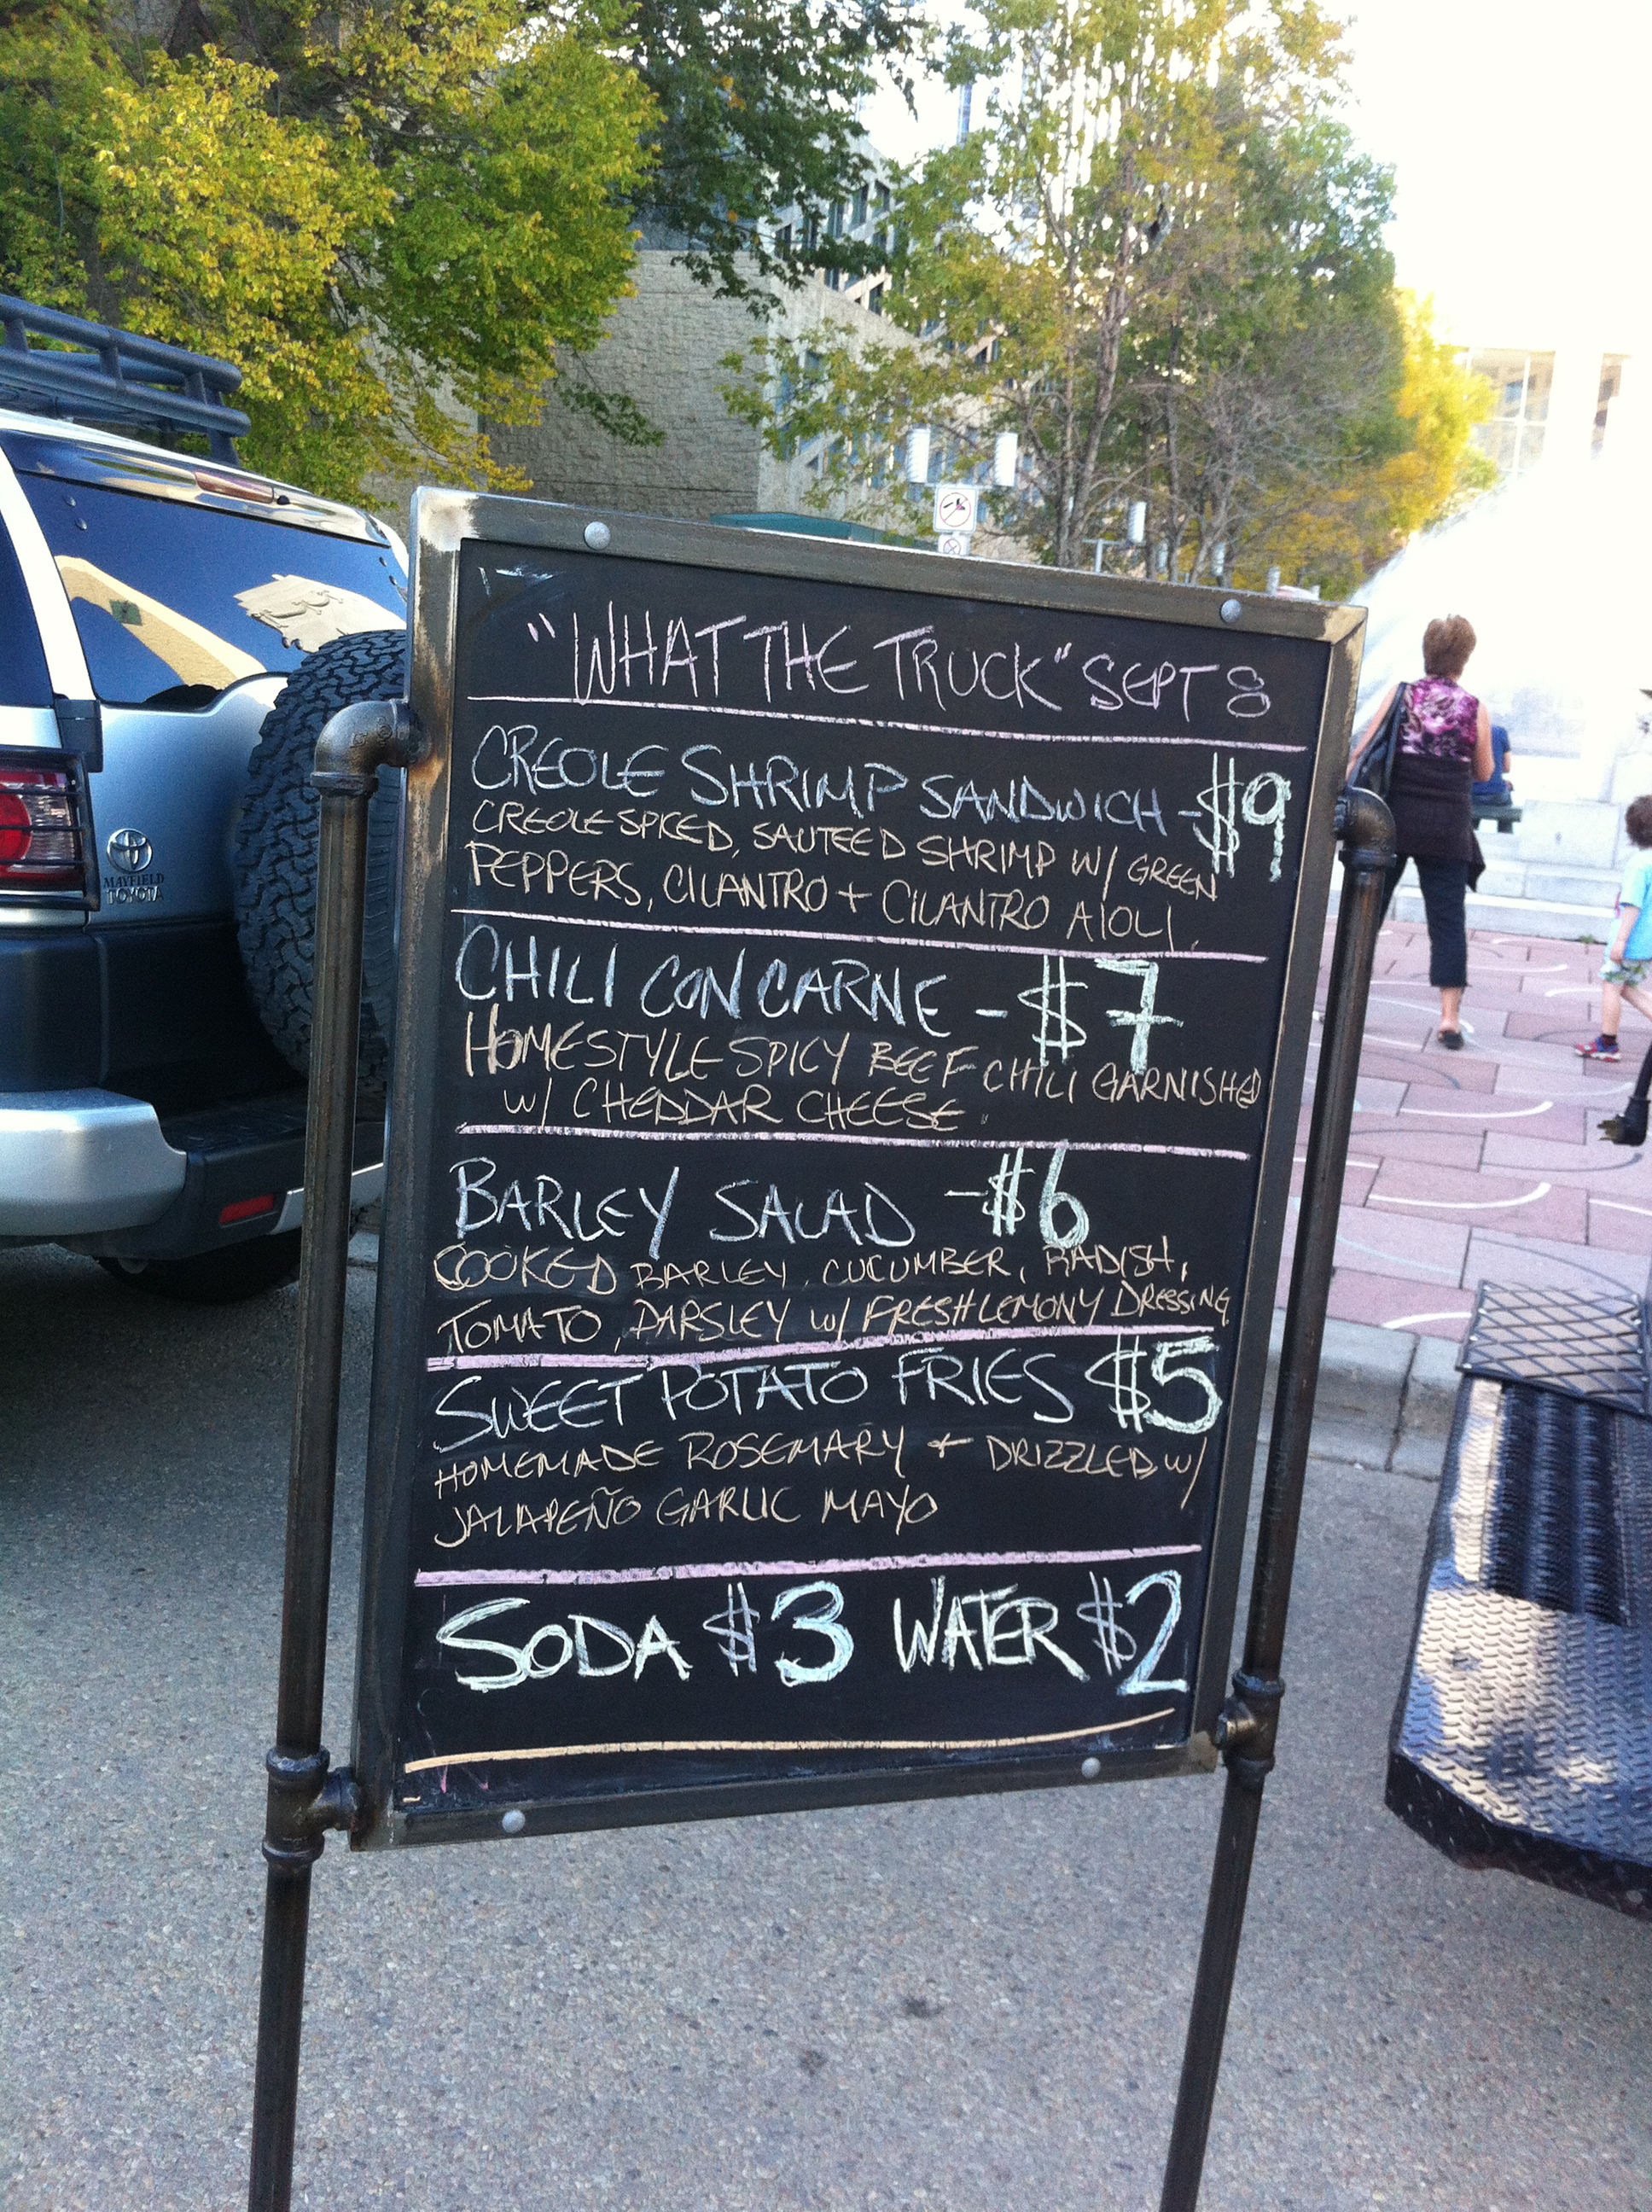 "WHAT THE TRUCK" SEPT 8
CREOLE SHRIMP SANDWICH - $9
CREOLE SPICED, SAUTEED SHRIMP W/ GREEN
PEPPERS, CILANTRO + CILANTRO AIOLI.
CHILI CON CARNE - $7
HOMESTYLE SPICY BEEF CHILI GARNISHED
W/ CHEDDAR CHEESE
BARLEY SALAD - $6
COOKED BARLEY, CUCUMBER, RADISH,
TOMATO, PARSLEY W/ FRESH LEMONY DRESSING
SWEET POTATO FRIES $5
HOMEMADE ROSEMARY + DRIZZLED W/
JALAPEÑO GARLIC MAYO
SODA $3 WATER $2
MAYFIELD
TOYOTA